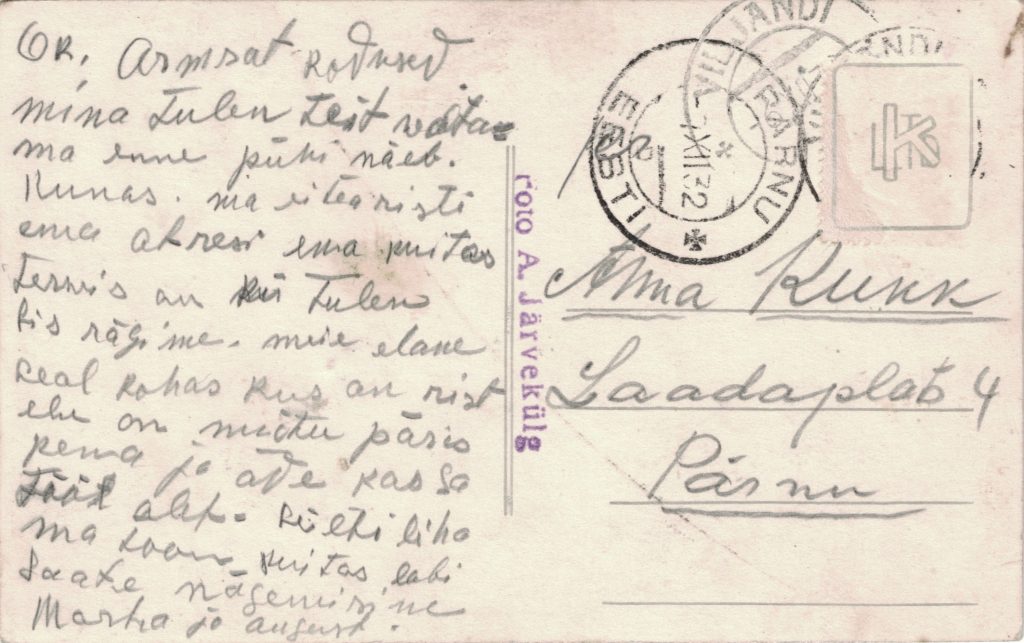 Armsat kodused
mina tulen teit vata
ma enne pühi näeb.
Kunas. ma ei tea risti
ema atresi ema kuitas
tervis on kui tulen
sis rägime. meie elame
seal kohas kus on rist
ehk on mitu päris
kena jo
tööl
ma toon kuitas labi
Saate nägemisine
Marta jo august.
Foto A. Järvekülg
VILJANDI
PÄRNU
EESTI
XII 32
Alma Kukk
Laadaplats 4
Pärnu